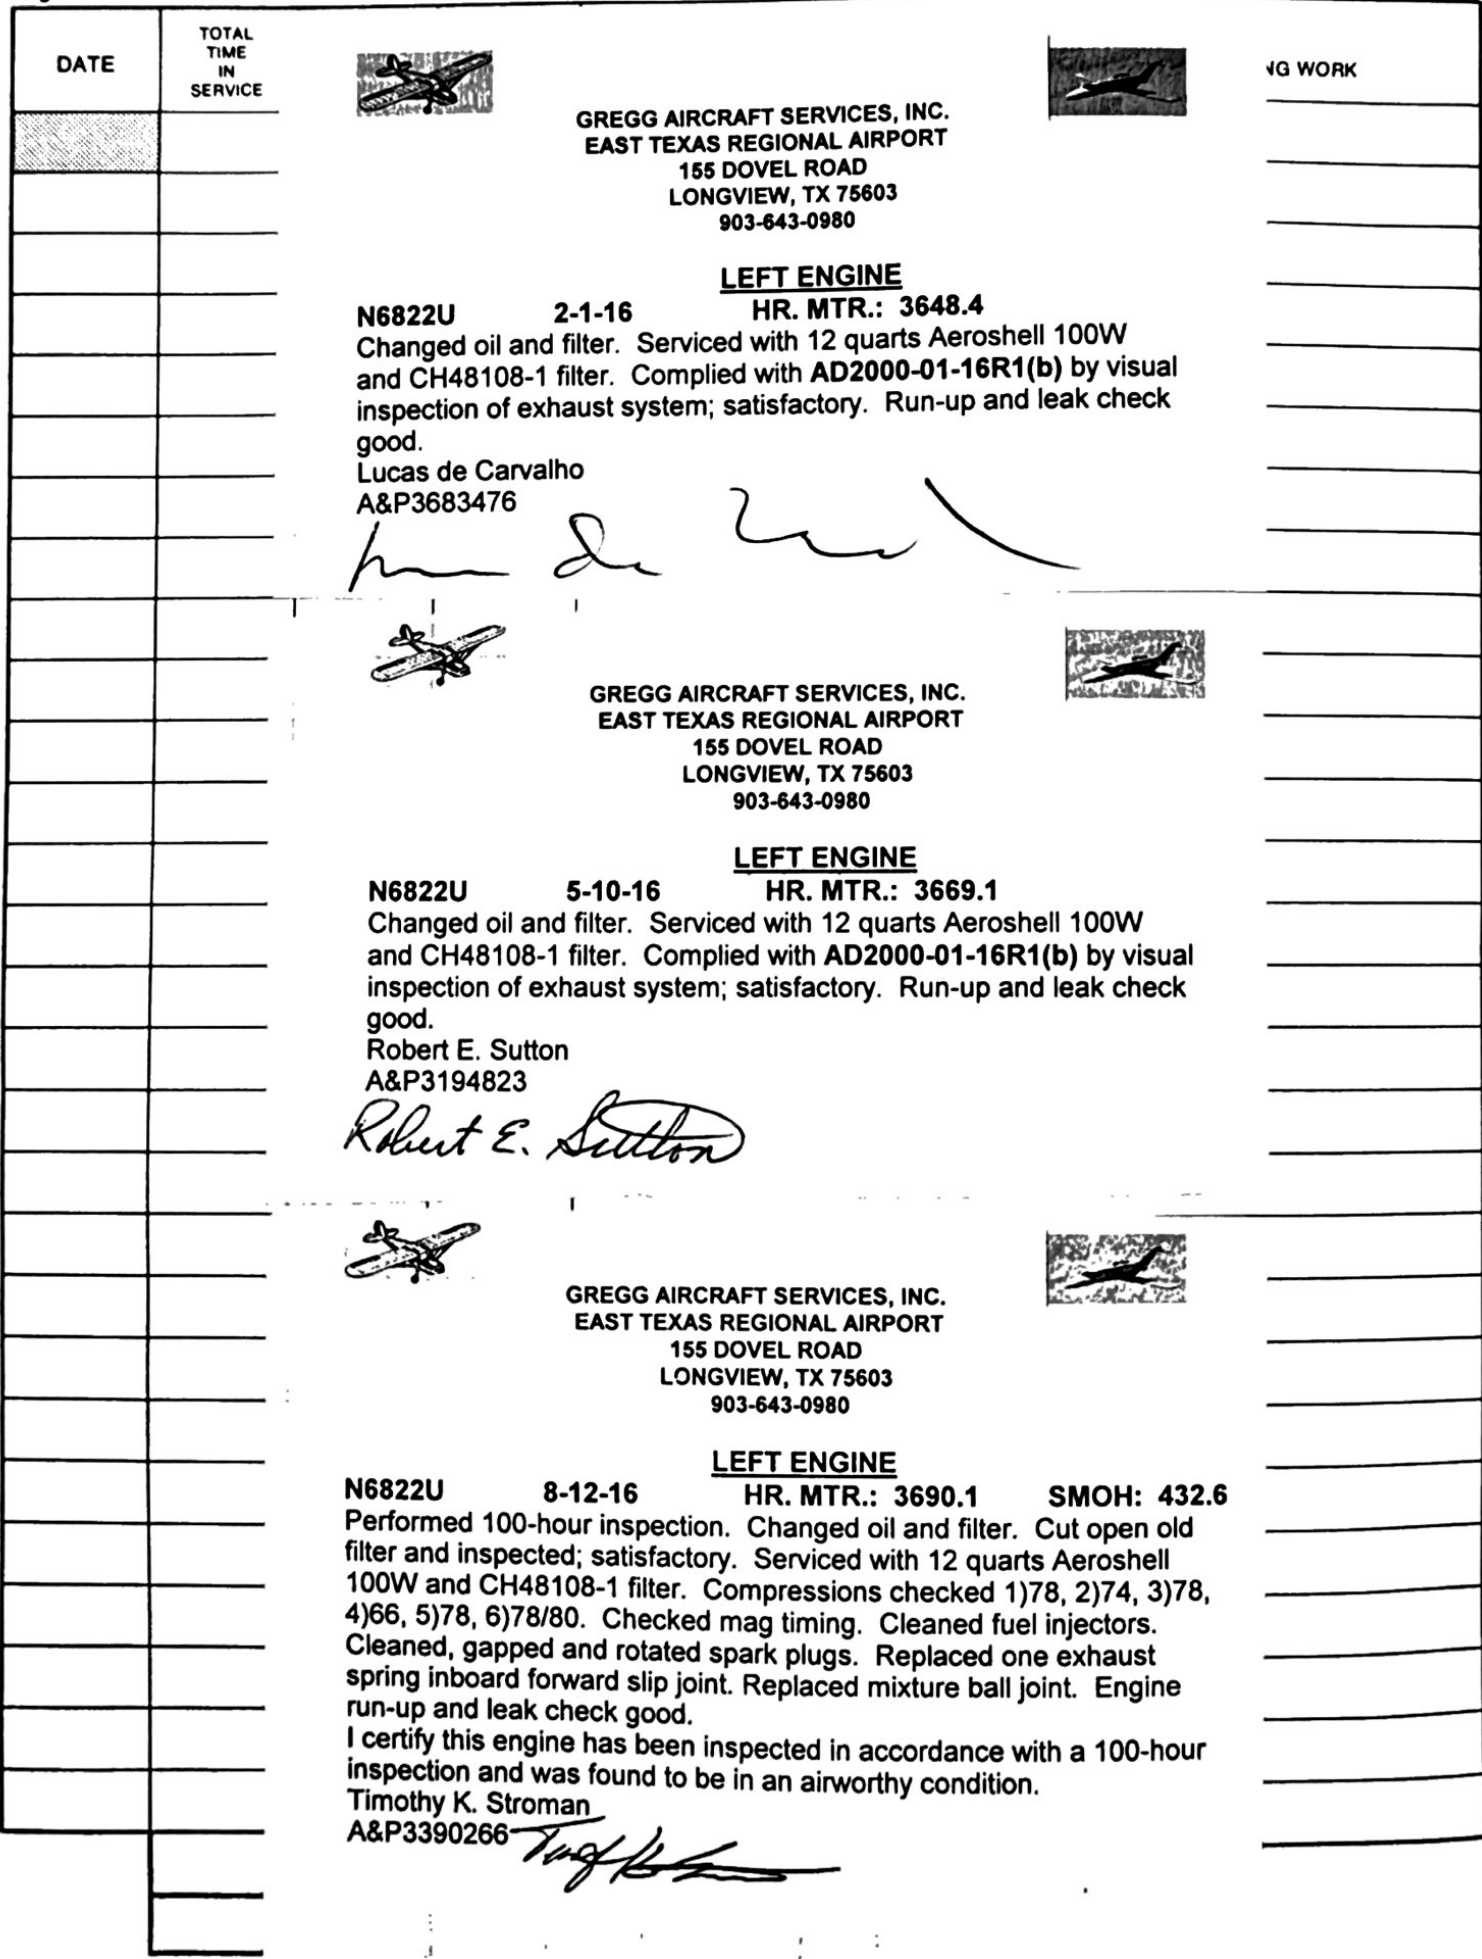 DATE
TOTAL
TIME
IN
SERVICE
NG WORK
GREGG AIRCRAFT SERVICES, INC.
EAST TEXAS REGIONAL AIRPORT
155 DOVEL ROAD
LONGVIEW, TX 75603
903-643-0980
LEFT ENGINE
N6822U 2-1-16 HR. MTR.: 3648.4
Changed oil and filter. Serviced with 12 quarts Aeroshell 100W
and CH48108-1 filter. Complied with AD2000-01-16R1(b) by visual
inspection of exhaust system; satisfactory. Run-up and leak check
good.
Lucas de Carvalho
A&P3683476
GREGG AIRCRAFT SERVICES, INC.
EAST TEXAS REGIONAL AIRPORT
155 DOVEL ROAD
LONGVIEW, TX 75603
903-643-0980
LEFT ENGINE
N6822U 5-10-16 HR. MTR.: 3669.1
Changed oil and filter. Serviced with 12 quarts Aeroshell 100W
and CH48108-1 filter. Complied with AD2000-01-16R1(b) by visual
inspection of exhaust system; satisfactory. Run-up and leak check
good.
Robert E. Sutton
A&P3194823
Robert E. Sutton
GREGG AIRCRAFT SERVICES, INC.
EAST TEXAS REGIONAL AIRPORT
155 DOVEL ROAD
LONGVIEW, TX 75603
903-643-0980
LEFT ENGINE
N6822U 8-12-16 HR. MTR.: 3690.1 SMOH: 432.6
Performed 100-hour inspection. Changed oil and filter. Cut open old
filter and inspected; satisfactory. Serviced with 12 quarts Aeroshell
100W and CH48108-1 filter. Compressions checked 1)78, 2)74, 3)78,
4)66, 5)78, 6)78/80. Checked mag timing. Cleaned fuel injectors.
Cleaned, gapped and rotated spark plugs. Replaced one exhaust
spring inboard forward slip joint. Replaced mixture ball joint. Engine
run-up and leak check good.
I certify this engine has been inspected in accordance with a 100-hour
inspection and was found to be in an airworthy condition.
Timothy K. Stroman
A&P3390266